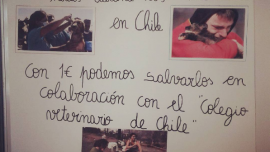 en Chile
Con 1€ podemos salvarlos en
colaboración con el "Colegio
veterinario de Chile"